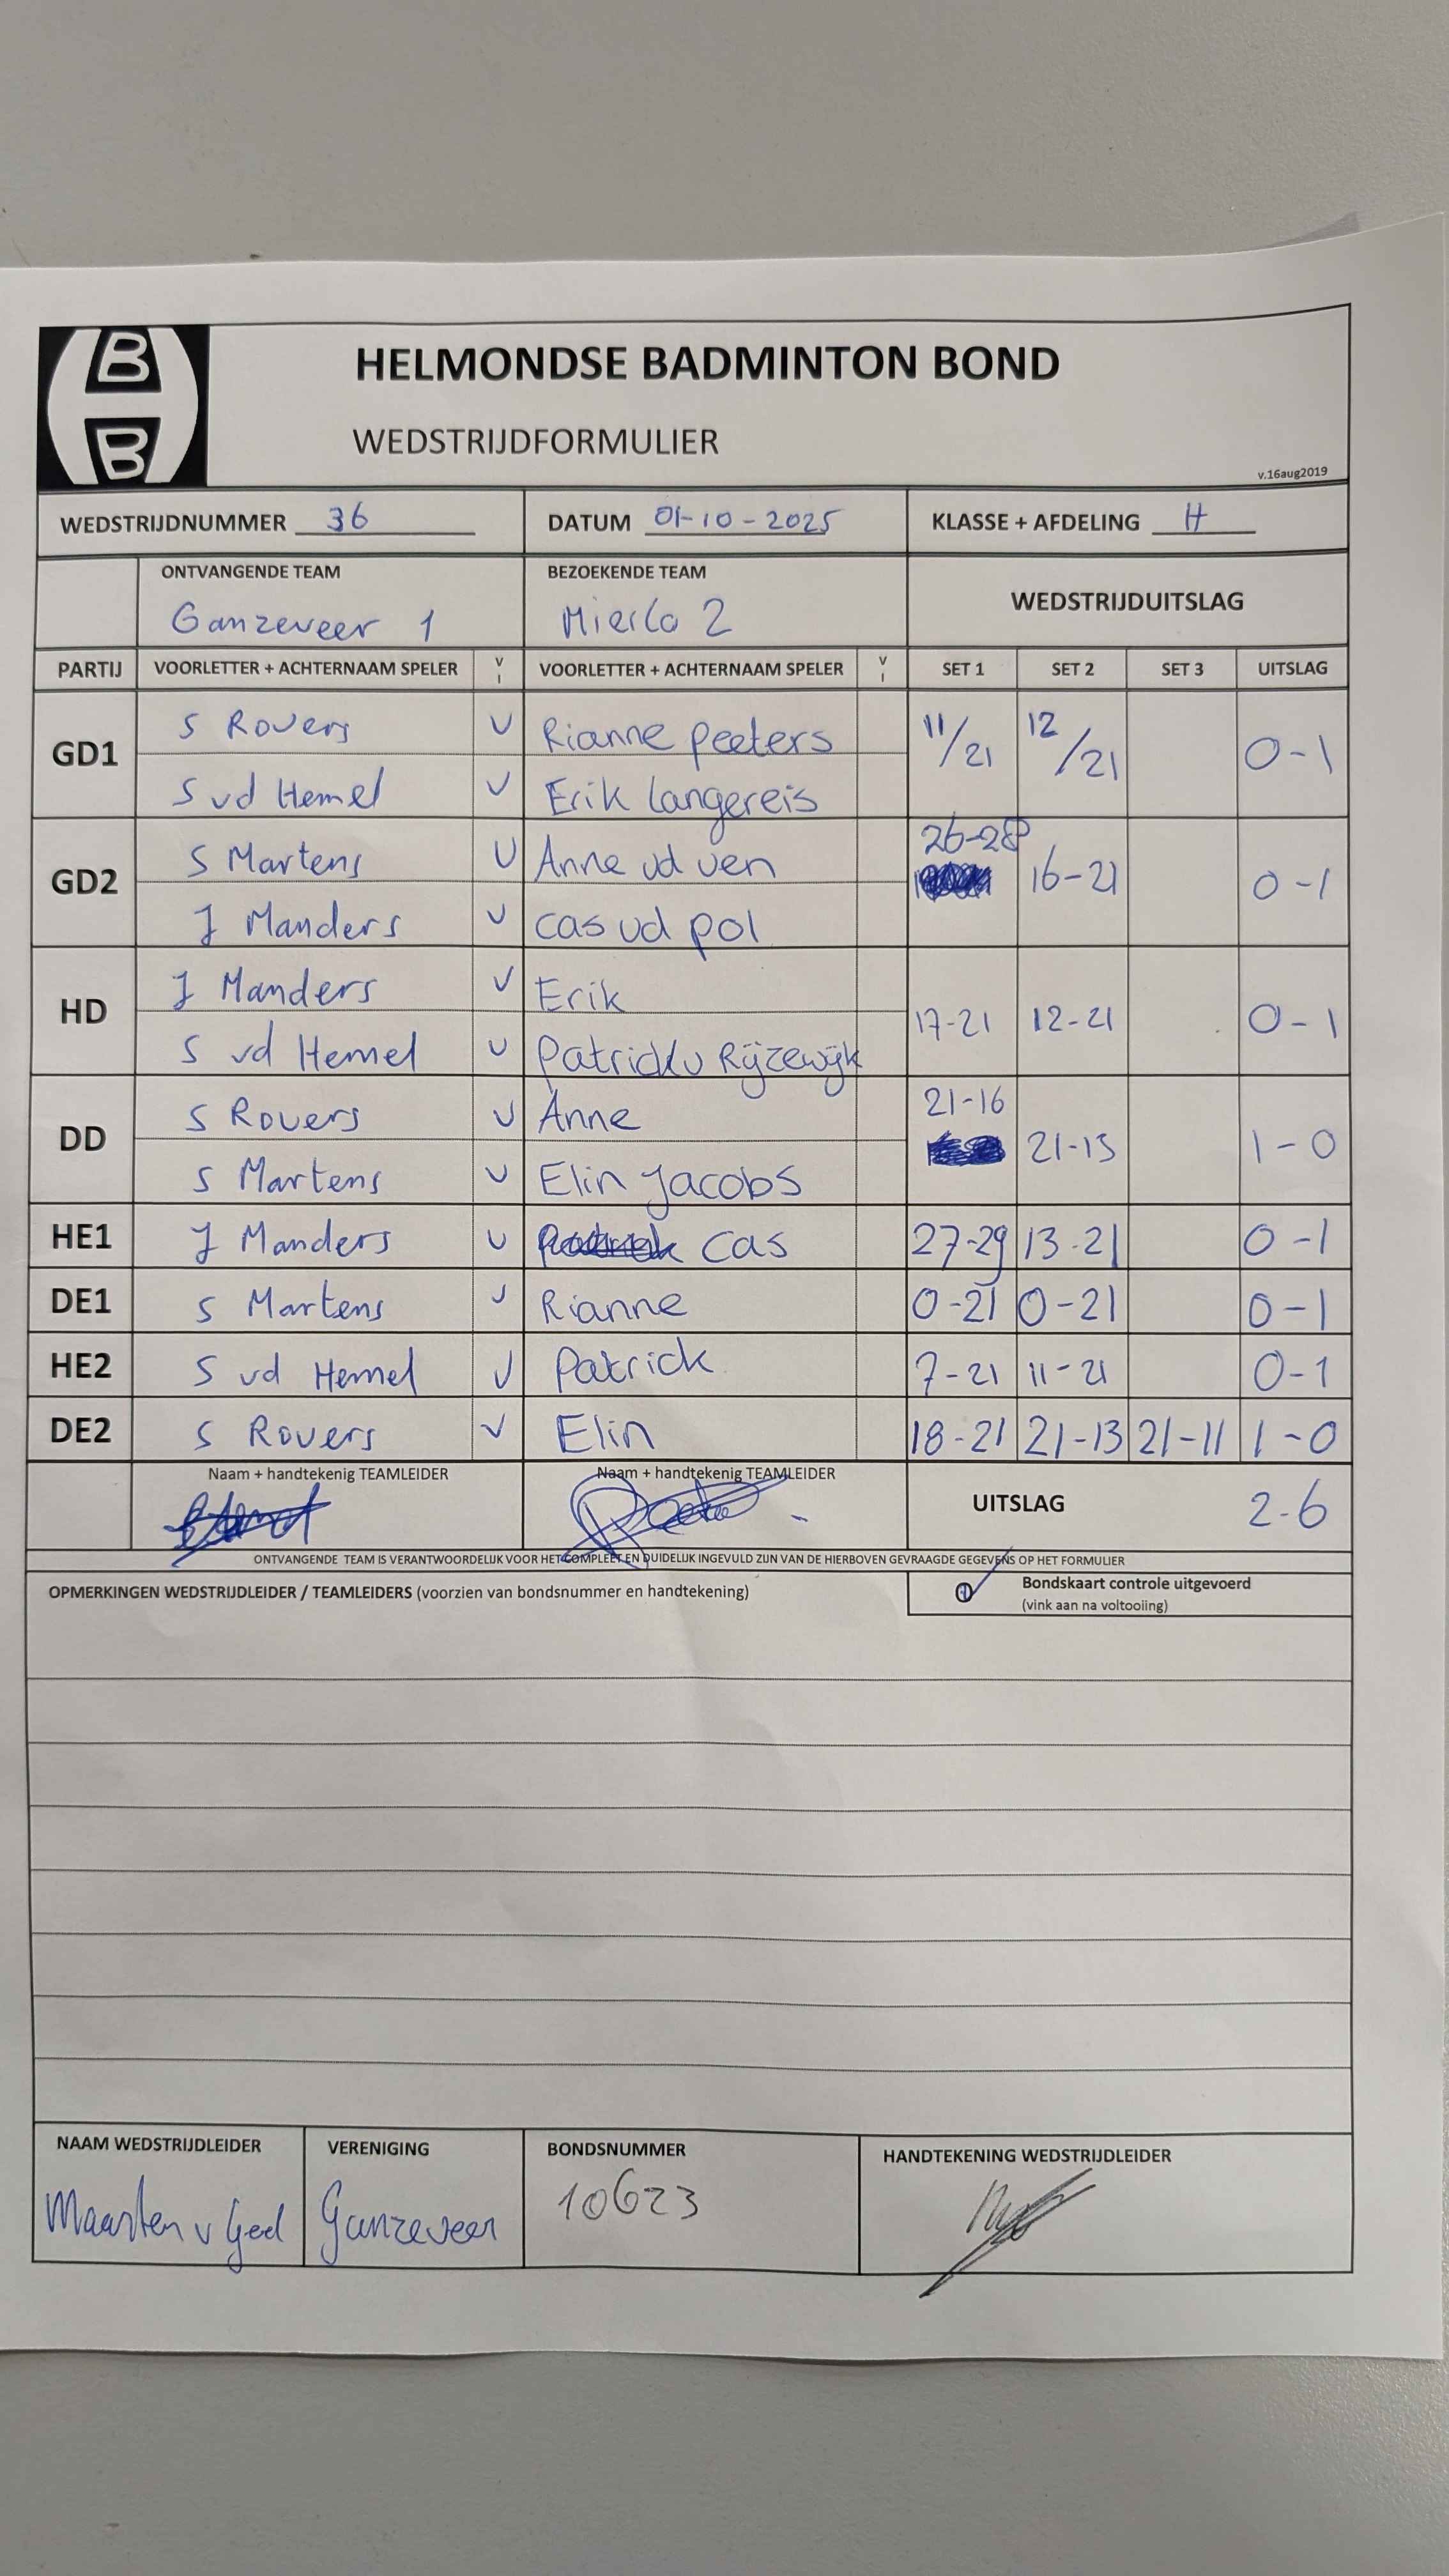 B
B
HELMONDSE BADMINTON BOND
WEDSTRIJDFORMULIER
v.16aug2019
WEDSTRIJDNUMMER 36 DATUM 01-10-2025 KLASSE + AFDELING H
ONTVANGENDE TEAM BEZOEKENDE TEAM WEDSTRIJDUITSLAG
Ganzeveer 1 Mierlo 2
PARTIJ VOORLETTER + ACHTERNAAM SPELER V I VOORLETTER + ACHTERNAAM SPELER V I SET 1 SET 2 SET 3 UITSLAG
GD1 S Rovers V Rianne Peeters 11/21 12/21 0-1
S vd Hemel V Erik Langereis
GD2 S Martens V Anne vd ven 26-28 16-21 0-1
J Manders V Cas vd pol
HD J Manders V Erik 17-21 12-21 0-1
S vd Hemel V Patrick v Rijzewijk
DD S Rovers V Anne 21-16 21-15 1-0
S Martens V Elin Jacobs
HE1 J Manders V Cas 27-29 13-21 0-1
DE1 S Martens V Rianne 0-21 0-21 0-1
HE2 S vd Hemel V Patrick 7-21 11-21 0-1
DE2 S Rovers V Elin 18-21 21-13 21-11 1-0
Naam + handtekenig TEAMLEIDER Naam + handtekenig TEAMLEIDER UITSLAG 2-6
ONTVANGENDE TEAM IS VERANTWOORDELIJK VOOR HET COMPLEET EN DUIDELIJK INGEVULD ZIJN VAN DE HIERBOVEN GEVRAAGDE GEGEVENS OP HET FORMULIER
OPMERKINGEN WEDSTRIJDLEIDER / TEAMLEIDERS (voorzien van bondsnummer en handtekening) Bondskaart controle uitgevoerd
(vink aan na voltooiing)
NAAM WEDSTRIJDLEIDER VERENIGING BONDSNUMMER HANDTEKENING WEDSTRIJDLEIDER
Maarten v Ganzeveer 10623